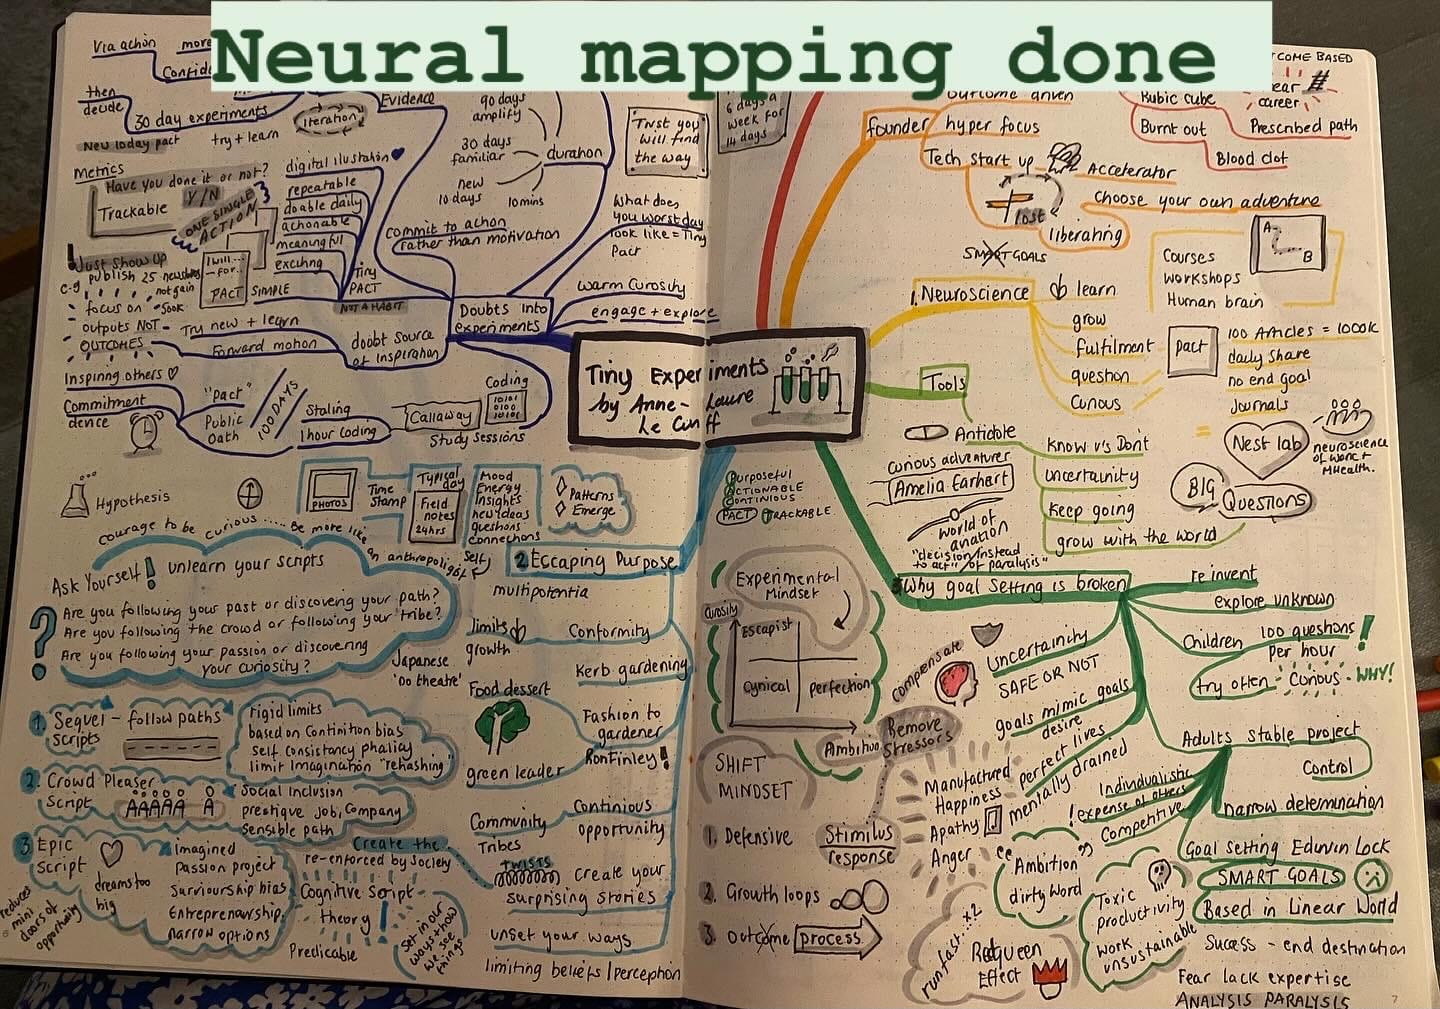 Neural mapping done
Via action
more
then
decide
30 day experiments
New 10day pact
try + learn
iteration
Evidence
Metrics
Have you done it or not?
Trackable
Y/N
ONE SINGLE
ACTION
digital ilustration
repeatable
doable daily
actionable
meaningful
exciting
Just Show up
e.g
publish 25 newsletters
not gain
500k
focus on
outputs NOT
OUTCOMES
I will....
for...
PACT
SIMPLE
Tiny
PACT
NOT A HABIT
90 days
amplify
30 days
familiar
new
10 days
10mins
duration
Trust you
will find
the way
commit to action
rather than motivation
What does
you worst day
look like = Tiny
Pact
warm Curiosity
engage + explore
Doubts into
experiments
Try new + learn
Forward motion
doubt Source
of inspiration
Inspiring others
Commitment
dence
"Pact"
Public
Oath
100 DAYS
Staling
1 hour Coding
Callaway
Study Sessions
Coding
10101
0100
10101
Tiny Experiments
by Anne-Laure
Le Cunff
6 days a
week for
14 days
founder
outcome driven
hyper focus
Tech start up
Accelerator
lost
liberating
Choose your own adventure
SMART GOALS
OUTCOME BASED
career
#
Rubic cube
Burnt out
Prescribed path
Blood clot
Courses
workshops
Human brain
A
B
1. Neuroscience
learn
grow
fulfilment
question
Curious
pact
100 Articles = 1000k
daily share
no end goal
Journals
= Nest lab
neuroscience
of work +
MHealth.
BIG
Questions
Tools
Antidote
Know v's Don't
uncertainity
Keep going
grow with the world
curious adventurer
Amelia Earhart
world of
aviation
"decision instead
to act" of paralysis"
Hypothesis
PHOTOS
Time
Stamp
Typical
day
Field
notes
24hrs
Mood
Energy
Insights
new ideas
questions
connections
Patterns
Emerge
courage to be curious ..... Be more like
an anthropoligist
Self
2. Escaping Purpose
multipotentia
Ask Yourself!
unlearn your scripts
? Are you following your past or discovering your path?
Are you following the crowd or following your tribe?
Are you following your passion or discovering
your curiosity?
limits
growth
Conformity
Japanese
'Do theatre'
Kerb gardening
Food dessert
Fashion to
gardener
Ron Finley!
green leader
Community
Tribes
Continious
opportunity
TWISTS
create your
surprising stories
unset your ways
limiting beliefs | perception
1. Sequel - follow paths
Scripts
Figid limits
based on Continition bias
Self Consistancy phallacy
limit Imagination "rehashing"
2. Crowd Pleaser
Script
Social Inclusion
prestique job, Company
Sensible path
3. Epic
Script
dreams too
big
imagined
Passion project
Surviourship bias
Entreprenuership
narrow options
reduces
mini
doors of
opportunity
Create the
re-enforced by Society
Cognitive Script
theory
Predicable
Set in our
ways + how
we see
things
Purposeful
Actionable
Continious
Trackable
PACT
Experimental
Mindset
Curiosity
Escapist
Cynical
Perfection
Ambition
SHIFT
MINDSET
1. Defensive
2. Growth loops
3. Outcome process
Remove
Stressors
Stimilus
response
compensate
Why goal Setting is broken
Uncertainity
SAFE OR NOT
goals mimic goals
desire
perfect lives
mentally drained
Manufactured
Happiness
Apathy
Anger
Individualistic
! expense of others
Competitive
"Ambition"
dirty word
run fast...x2
Red queen
Effect
Toxic
productivity
work
unsustainable
reinvent
explore unknown
Children
100 questions
Per hour
!
try often
Curious
WHY!
Adults stable project
Control
Narrow determination
Goal setting Edwin Lock
SMART GOALS
Based in Linear World
Sucess - end destination
Fear lack expertise
ANALYSIS PARALYSIS
7